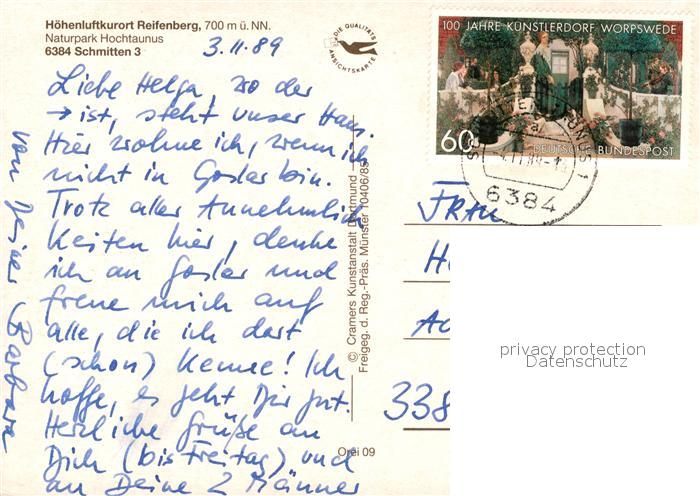 Höhenluftkurort Reifenberg, 700 m ü. NN.
Naturpark Hochtaunus
6384 Schmitten 3
3.11.89
DIE QUALITÄTS
ANSICHTSKARTE
100 JAHRE KÜNSTLERDORF WORPSWEDE
60
DEUTSCHE BUNDESPOST
6384
Liebe Helga, wo der
→ ist, steht unser Haus.
Hier wohne ich, wenn ich
nicht in Goslar bin.
Trotz aller Annehmlich
keiten hier, denke
ich an Goslar und
freue mich auf
alle, die ich dort
(schon) kenne! Ich
hoffe, es geht Dir gut.
Herzliche Grüße an
Dich (bis Freitag) und
an Deine 2 Männer
von Deiner Barbara
© Cramers Kunstanstalt Dortmund —
Freigeg. d. Reg.-Präs. Münster 10406/85
Orei 09
FRAU
H
338
privacy protection
Datenschutz